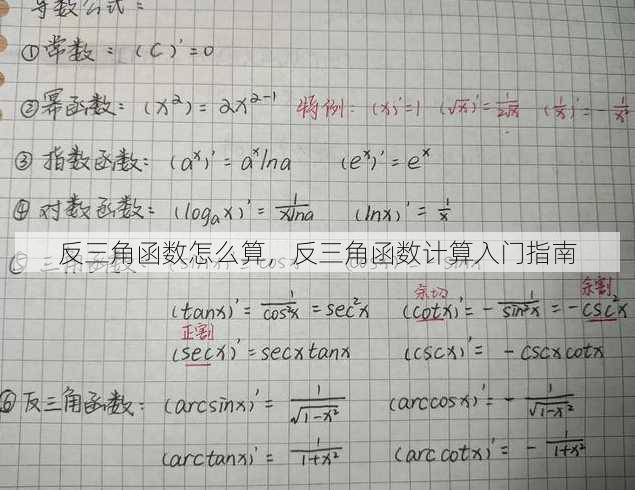 导数公式：
①常数：(C)'=0
②幂函数：(x²)=2x²⁻¹ 特例：(x)'=1 (√x)'=1/(2√x) (1/x)'=-1/x²
③指数函数：(aˣ)'=aˣlna (eˣ)'=eˣ
④对数函数：(logₐx)'=1/(xlna) (lnx)'=1/x
反三角函数怎么算，反三角函数计算入门指南
⑤三角函数：
余切 余割
(tanx)'=1/cos²x=sec²x (cotx)'=-1/sin²x=-csc²x
正割
(secx)'=secxtanx (cscx)'=-cscxcotx
⑥反三角函数：(arcsinx)'=1/√(1-x²) (arccosx)'=-1/√(1-x²)
(arctanx)'=1/(1+x²) (arccotx)'=-1/(1+x²)